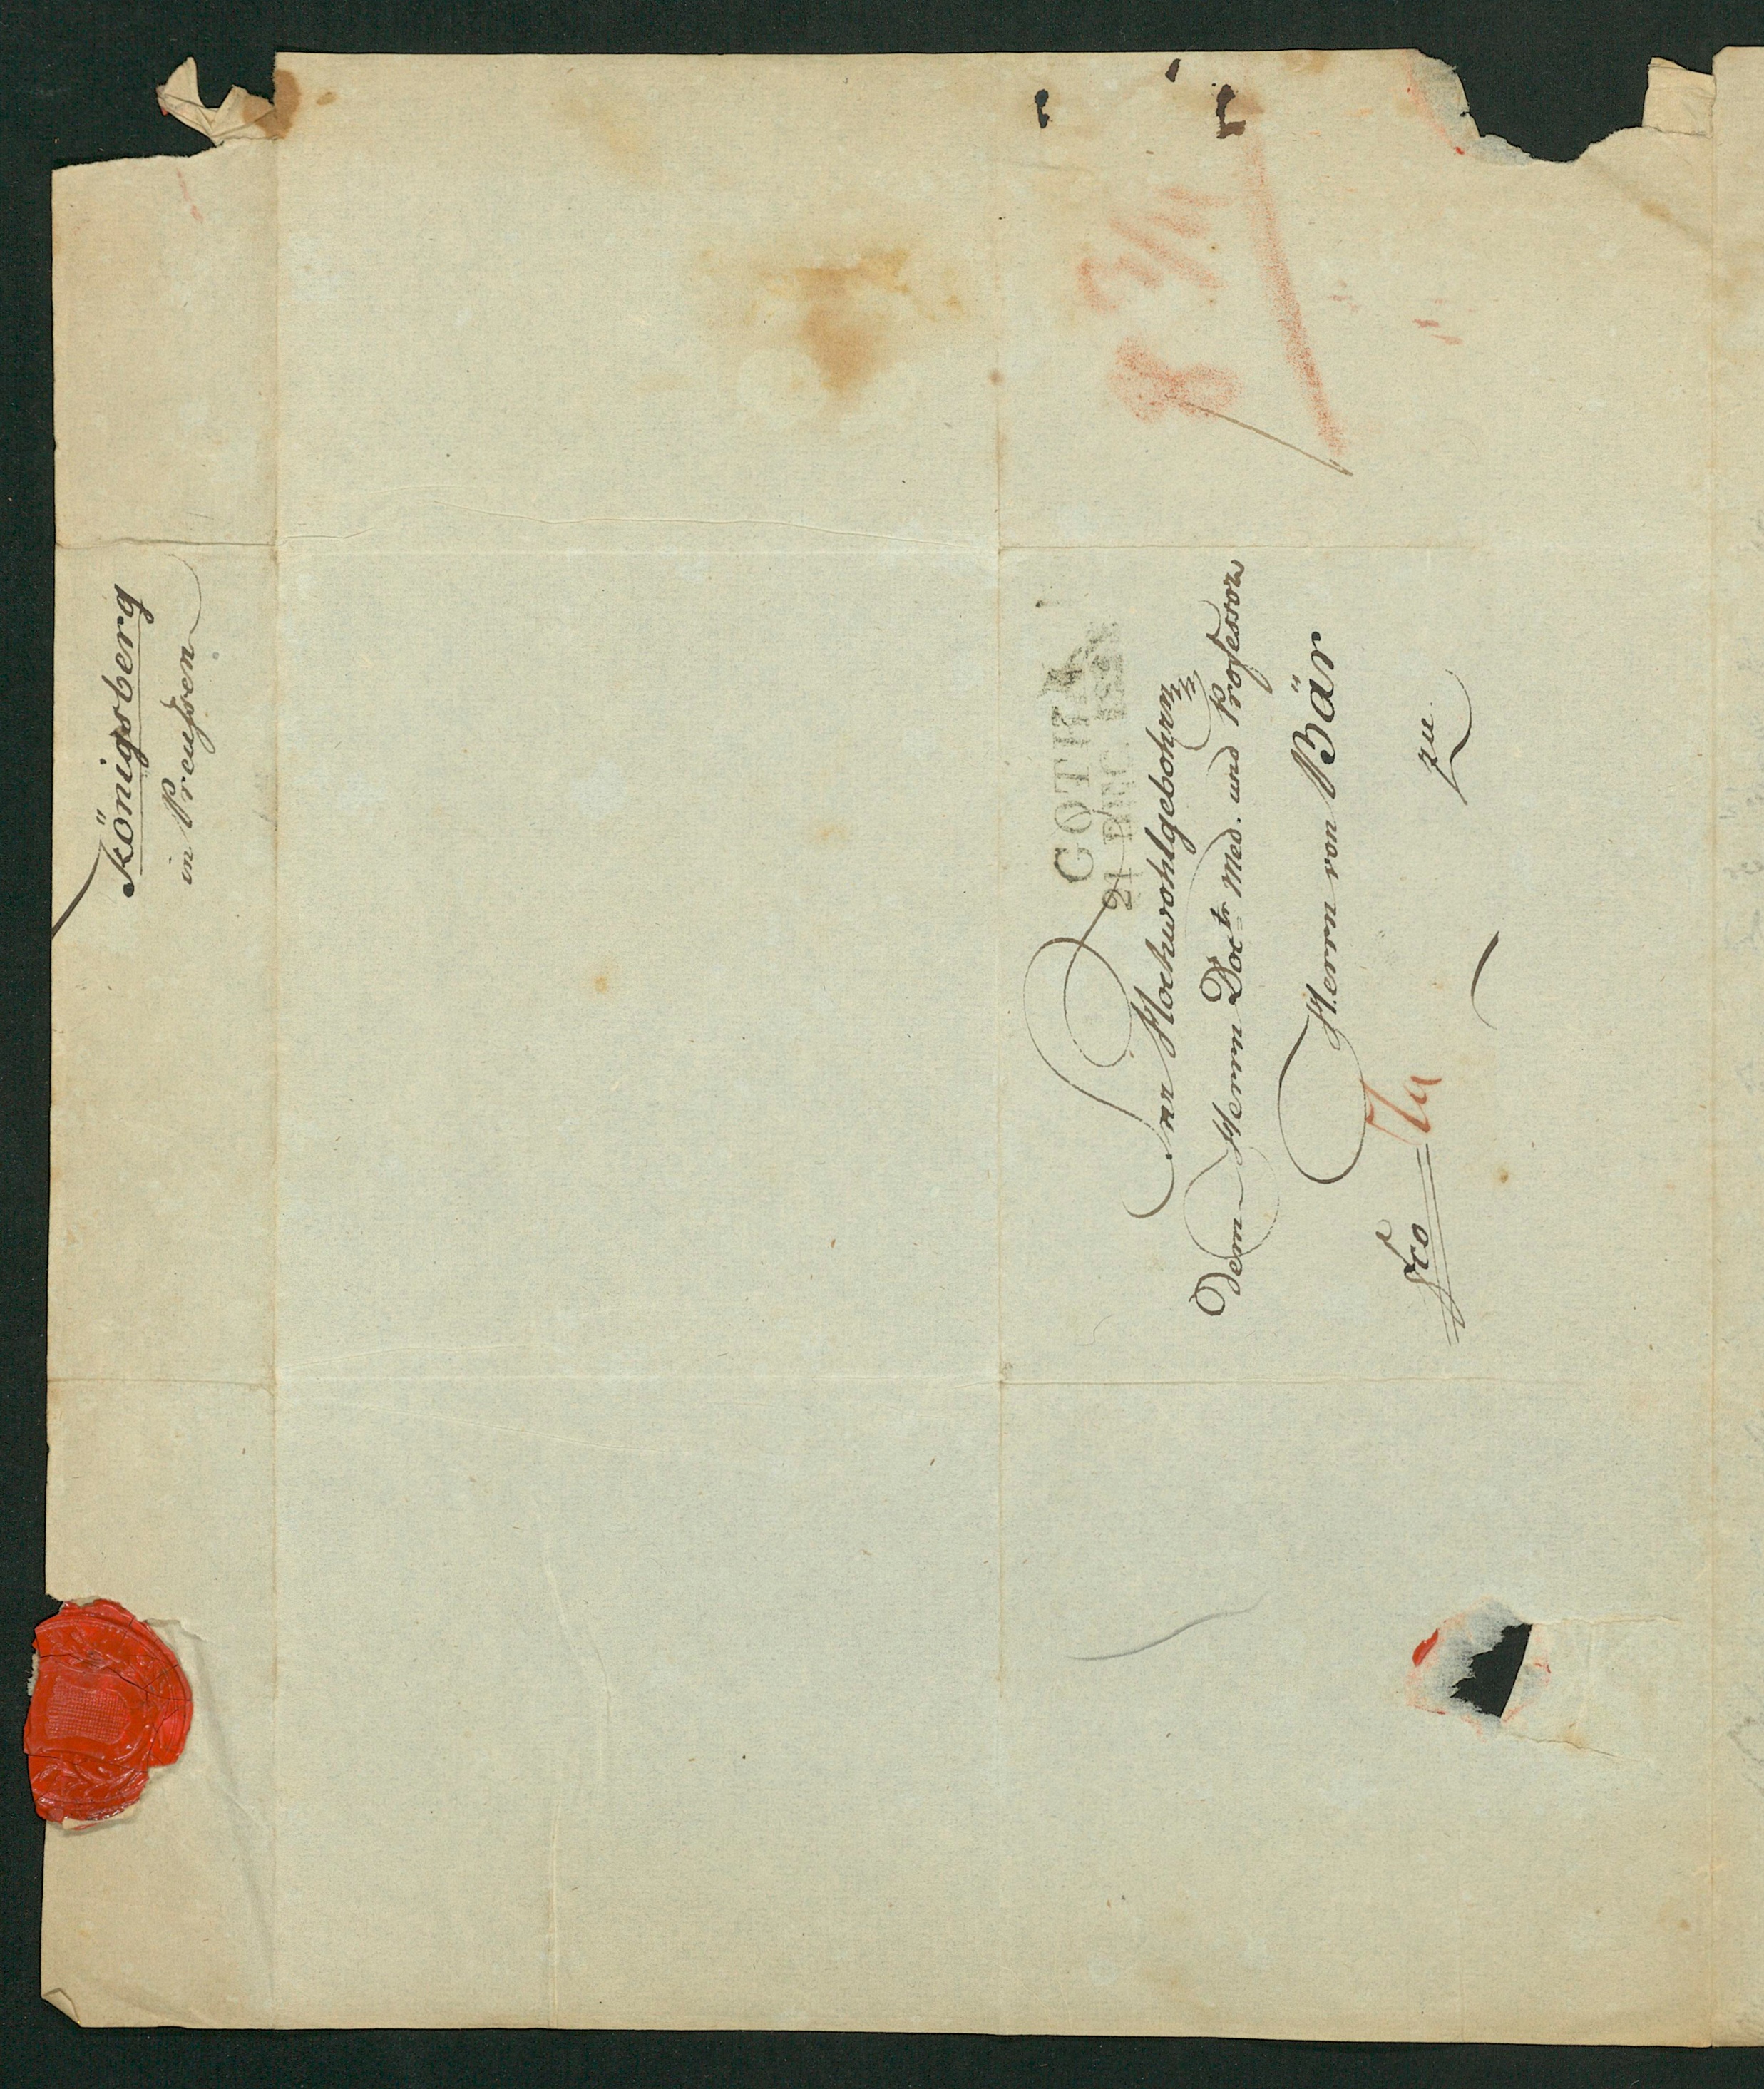 GOTHA
21 DEC
Snr Hochwohlgebohrn
Dem Herrn Doctr Med. und Professor
Herrn von Bär
zu
fco
Königsberg
in Preussen